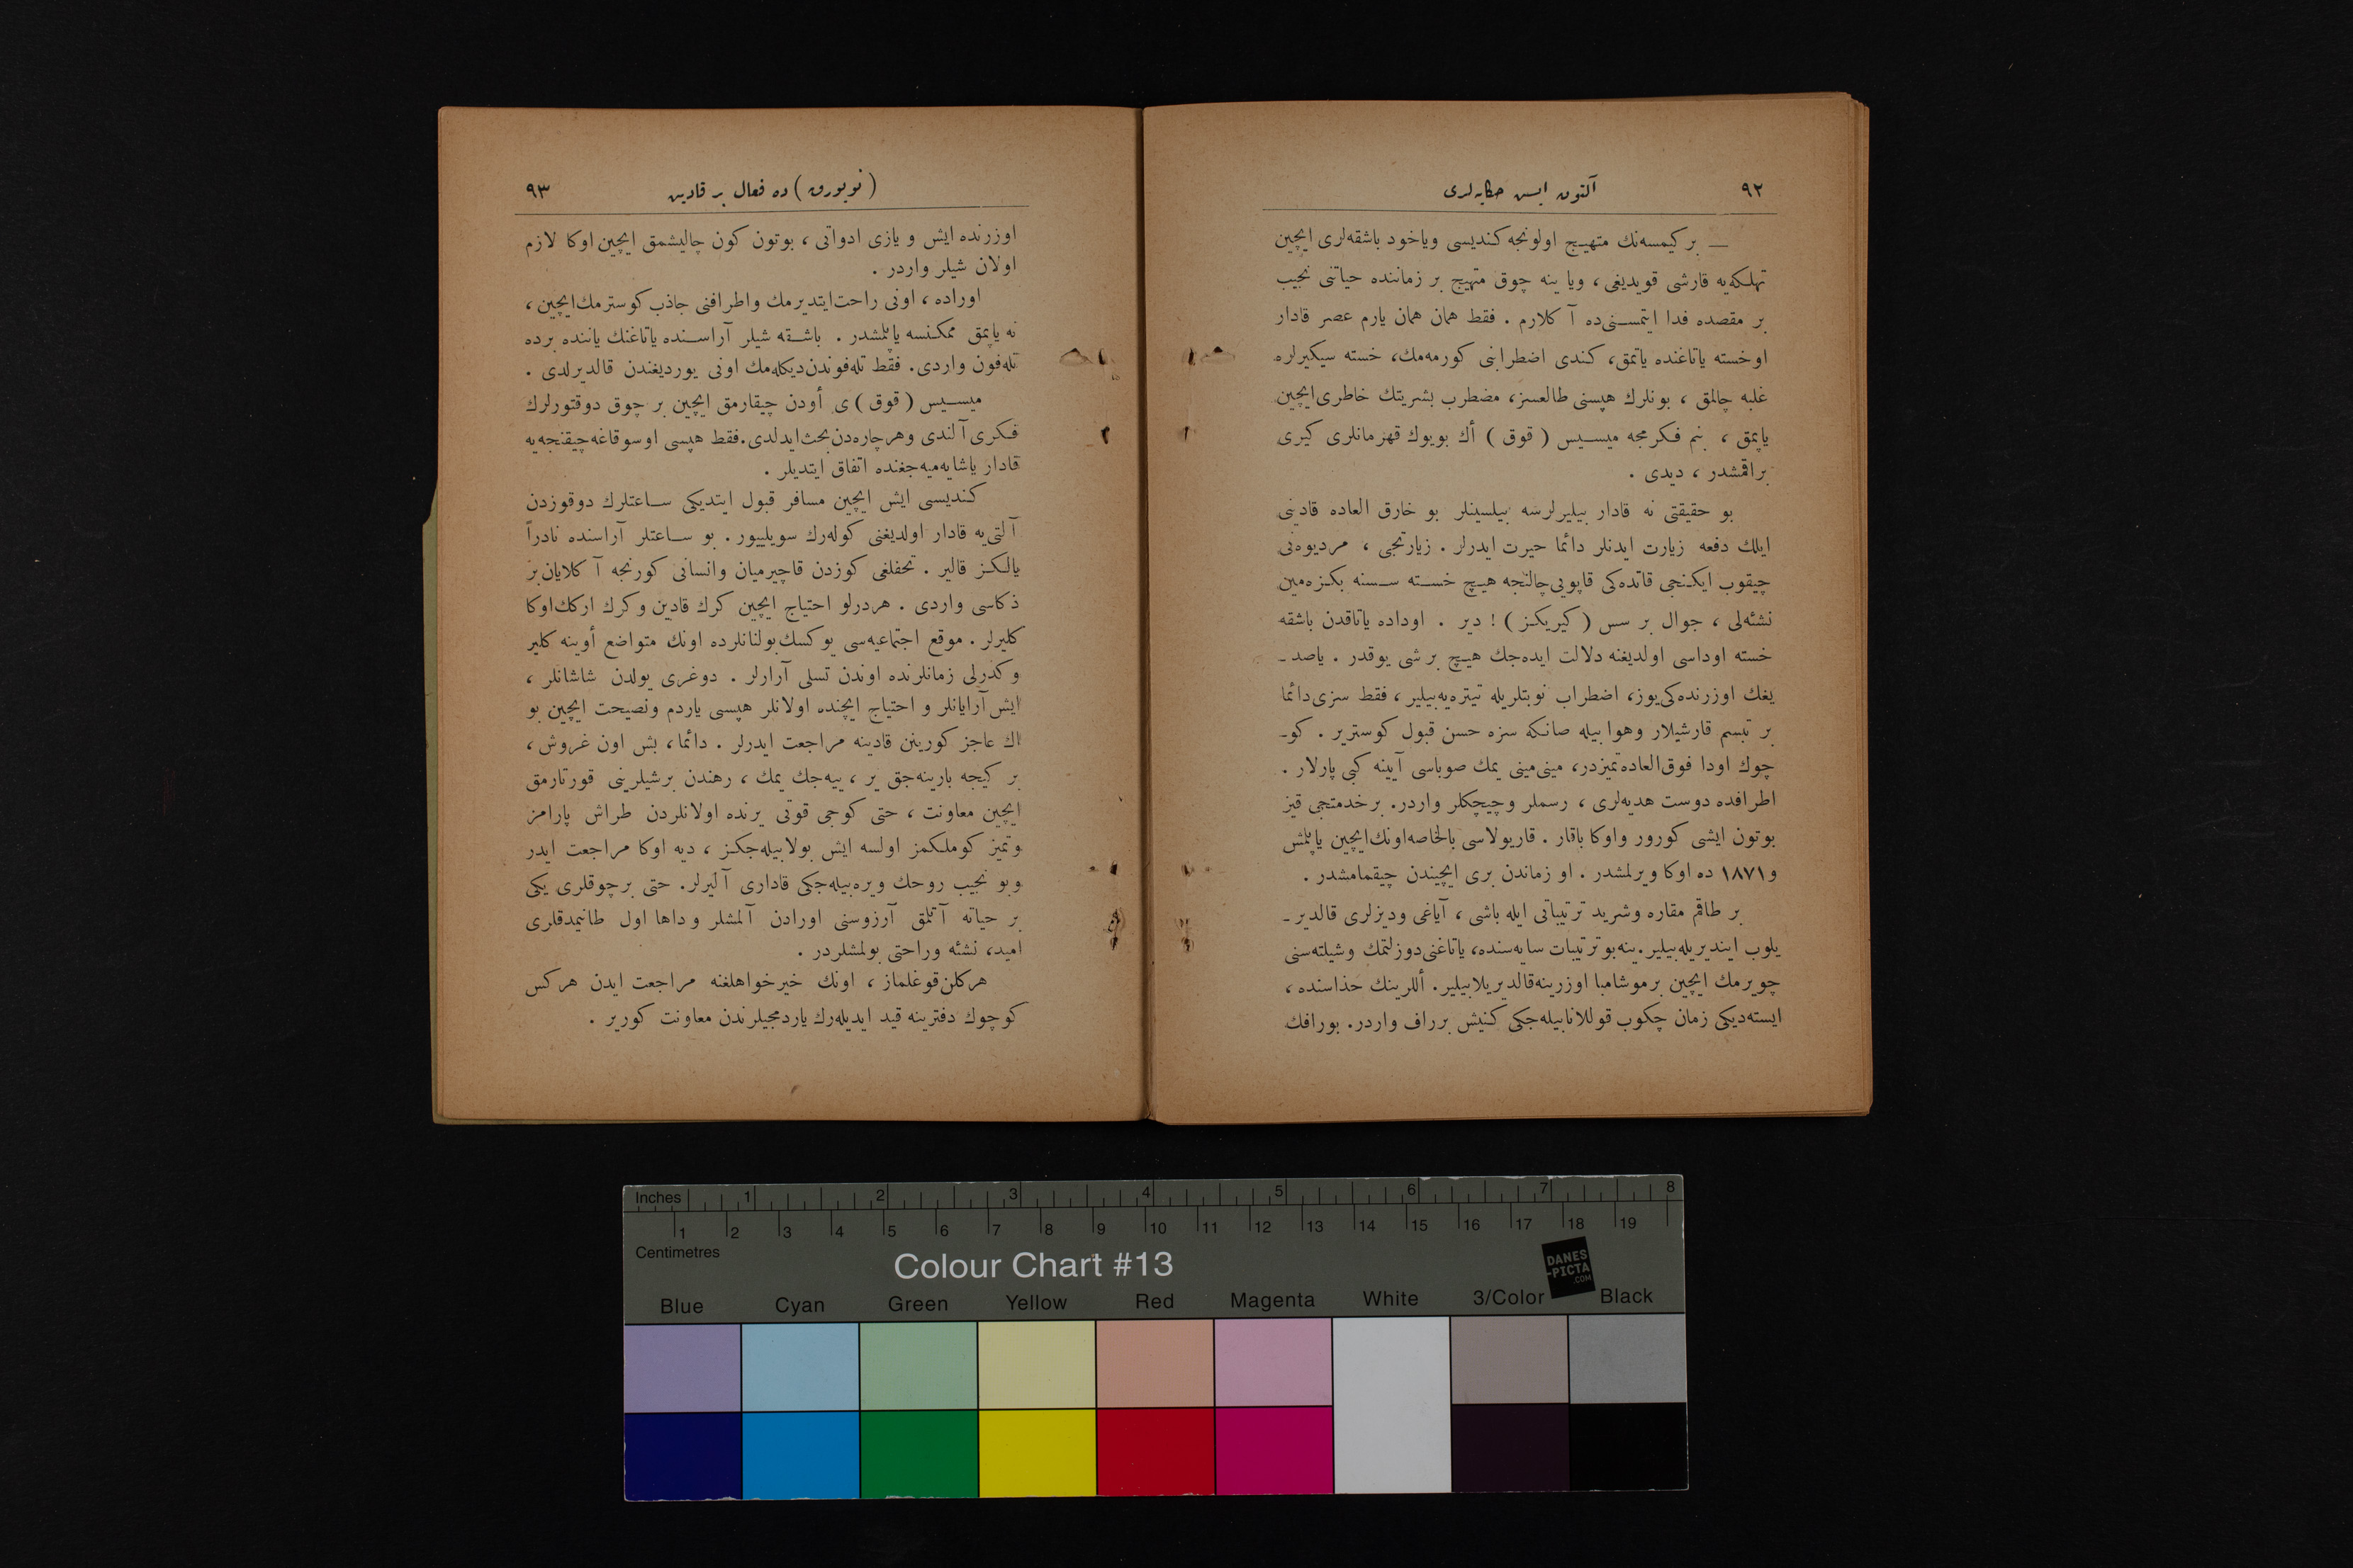 ٩٢
آلتون ايس حكايه‌لرى
— بر كيمسه‌نك متهيج اولونجه كنديسى وياخود باشقه‌لرى ايچين
تهلكه‌يه قارشى قويديغى ، ويا ينه چوق متهيج بر زماننده حياتنى نجيب
بر مقصده فدا ايتمسنى‌ده آ كلارم . فقط همان همان يارم عصر قادار
او خسته ياتاغنده ياتمق، كندى اضطرابنى كورمه‌مك، خسته سيكيرلره
غلبه چالمق ، بونلرك هپسنى طالعسز، مضطرب بشريتك خاطرى ايچين
ياپمق ، بنم فكرمجه ميسيس ( قوق ) أك بويوك قهرمانلرى كيرى
براقمشدر ، ديدى .
بو حقيقتى نه قادار بيليرلرسه بيلسينلر بو خارق العاده قادينى
ايلك دفعه زيارت ايدنلر دائما حيرت ايدرلر . زيارتجى ، مرديوه‌نى
چيقوب ايكنجى قاتده‌كى قاپويى چالنجه هيچ خسته سسنه بكزه‌مين
نشئه‌لى ، جوال بر سس ( كيريكز ) ! دير . اوداده ياتاقدن باشقه
خسته اوداسى اولديغنه دلالت ايده‌جك هيچ بر شى يوقدر . ياصد ـ
يغك اوزرنده‌كى يوز، اضطراب نوبتلريله تيتره‌يه‌بيلير ، فقط سزى دائما
بر تبسم قارشيلار وهوا بيله صانكه سزه حسن قبول كوسترير . كوـ
چوك اودا فوق‌العاده تميزدر، مينى مينى يمك صوباسى آيينه كبى پارلار .
اطرافده دوست هديه‌لرى ، رسملر وچيچكلر واردر. بر خدمتجى قيز
بوتون ايشى كورور واوكا باقار . قاريولاسى بالخاصه اونك ايچين ياپلمش
و ١٨٧١ ده اوكا ويرلمشدر . او زماندن برى ايچيندن چيقمامشدر .
بر طاقم مقاره وشريد ترتيباتى ايله باشى ، آياغى وديزلرى قالدير ـ
يلوب اينديريله‌بيلير. ينه بو ترتيبات سايه‌سنده، ياتاغنى دوزلتمك وشيلته‌سنى
چويرمك ايچين بر موشامبا اوزرينه قالديريلابيلير. أللرينك حذاسنده ،
ايسته‌ديكى زمان چكوب قوللانابيله‌جكى كنيش بر راف واردر. بورافك
( نويورق ) ده فعال بر قادين
٩٣
اوزرنده ايش و يازى ادواتى ، بوتون كون چاليشمق ايچين اوكا لازم
اولان شيلر واردر .
اوراده ، اونى راحت ايتديرمك واطرافنى جاذب كوسترمك ايچين ،
نه ياپمق ممكنسه ياپلمشدر . باشقه شيلر آراسنده ياتاغنك ياننده برده
تله‌فون واردى. فقط تله‌فوندن ديكله‌مك اونى يورديغندن قالديرلدى .
ميسيس ( قوق ) ى أودن چيقارمق ايچين بر چوق دوقتورلرك
فكرى آلندى وهر چاره‌دن بحث ايدلدى. فقط هپسى او سوقاغه چيقنجه‌يه
قادار ياشايه‌ميه‌جغنده اتفاق ايتديلر .
كنديسى ايش ايچين مسافر قبول ايتديكى ساعتلرك دوقوزدن
آلتى‌يه قادار اولديغنى كوله‌رك سويلييور . بو ساعتلر آراسنده نادراً
يالكز قالير . تحفلغى كوزدن قاچيرميان وانسانى كورنجه آ كلايان بر
ذكاسى واردى . هر درلو احتياج ايچين كرك قادين و كرك اركك اوكا
كليرلر . موقع اجتماعيه‌سى يوكسك بولنانلرده اونك متواضع أوينه كلير
و كدرلى زمانلرنده اوندن تسلى آرارلر . دوغرى يولدن شاشانلر ،
ايش آرايانلر و احتياج ايچنده اولانلر هپسى ياردم ونصيحت ايچين بو
اك عاجز كورينن قادينه مراجعت ايدرلر . دائما، بش اون غروش ،
بر كيجه بارينه‌جق ير ، ييه‌جك يمك ، رهندن بر شيلرينى قورتارمق
ايچين معاونت ، حتى كوجى قوتى يرنده اولانلردن طراش پارامز
وتميز كوملكمز اولسه ايش بولابيله‌جكز ، ديه اوكا مراجعت ايدر
و بو نجيب روحك ويره‌بيله‌جكى قادارى آليرلر. حتى بر چوقلرى يكى
بر حياته آتلمق آرزوسنى اورادن آلمشلر و داها اول طانيمدقلرى
اميد، نشئه وراحتى بولمشلردر .
هر كلن قوغلماز ، اونك خيرخواهلغنه مراجعت ايدن هر كس
كوچوك دفترينه قيد ايديله‌رك ياردمجيلرندن معاونت كورير .
Inches 1 2 3 4 5 6 7 8
1 2 3 4 5 6 7 8 9 10 11 12 13 14 15 16 17 18 19
Centimetres
Colour Chart #13
DANES
-PICTA
.COM
Blue Cyan Green Yellow Red Magenta White 3/Color Black